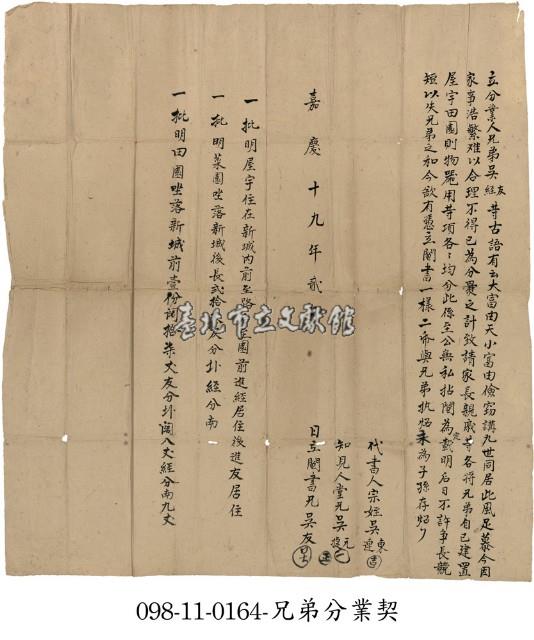 立分業人兄弟吳友經等古語有云大富由天小富由儉竊謂九世同居此風足慕今因
家事浩繁難以合理不得已為分爨之計致請家長親戚等各將兄弟自己建置
屋宇田園則物器用等項各々均分此係至公無私拈鬮為定載明后日不許爭長競
短以失兄弟之和今欲有憑立鬮書一樣二帋與兄弟执炤永為子孫存炤
代書人宗姪吳
知見人堂兄吳元
嘉慶十九年貳
日立鬮書兄吳友
一批明屋宇住在新城內前至路
園前進經居住後進友居住
一批明菜園坐落新城後長弍拾
友分圤經分南
一批明田園坐落新城前壹份闊拾柒丈友分圤闊八丈經分南九丈
臺北市立文獻館
098-11-0164-兄弟分業契